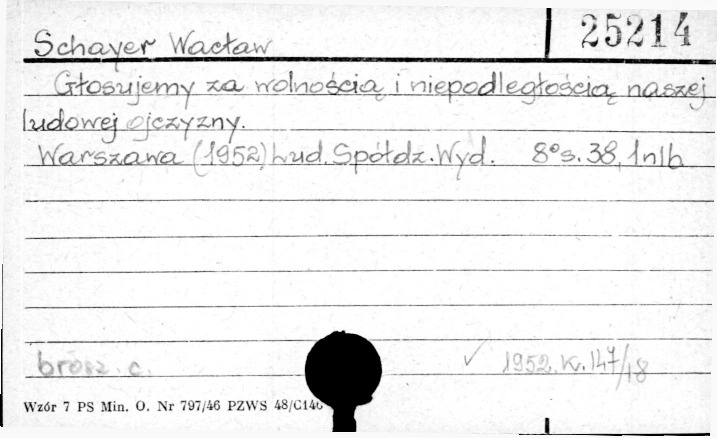 Schayer Wacław 25214
Głosujemy za wolnością i niepodległością naszej
ludowej ojczyzny.
Warszawa (1952) Lud. Spółdz. Wyd. 8° s. 38, 1 nlb
brosz. c. ✓ 1952. K. 147/18
Wzór 7 PS Min. O. Nr 797/46 PZWS 48/C146